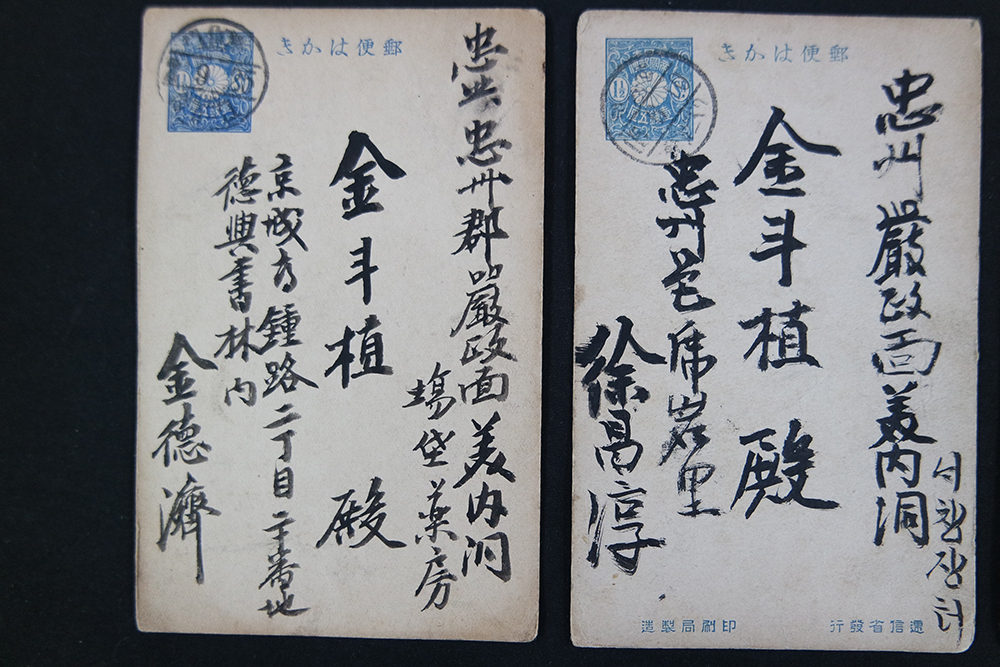 郵便はかき
忠北忠州郡嚴政面美內洞
塲垈薬房
金斗植 殿
京城府鍾路二丁目二十番地
德興書林內
金德濟
郵便はかき
忠州嚴政面美內洞
장터
金斗植 殿
忠州邑虎岩里
徐昌淳
遞信省發行
印刷局製造